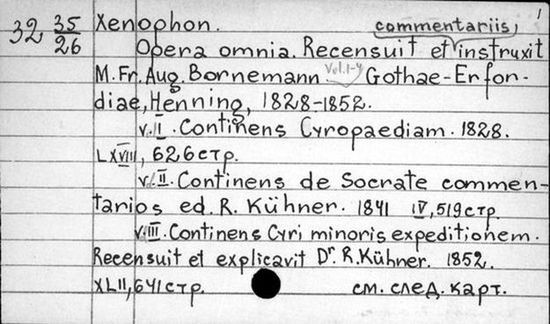 1
32 35/26 Xenophon. commentariis,
Opera omnia. Recensuit et instruxit
M. Fr. Aug. Bornemann Vol. 1-4 Gothae-Erfor-
diae, Henning, 1828-1852.
v. I. Continens Cyropaediam. 1828.
LXVIII, 626 стр.
v. II. Continens de Socrate commen-
tarios ed. R. Kühner. 1841 IV, 519 стр
v. III. Continens Cyri minoris expeditionem.
Recensuit et explicavit Dr. R. Kühner. 1852.
XLII, 641 стр. см. след. карт.